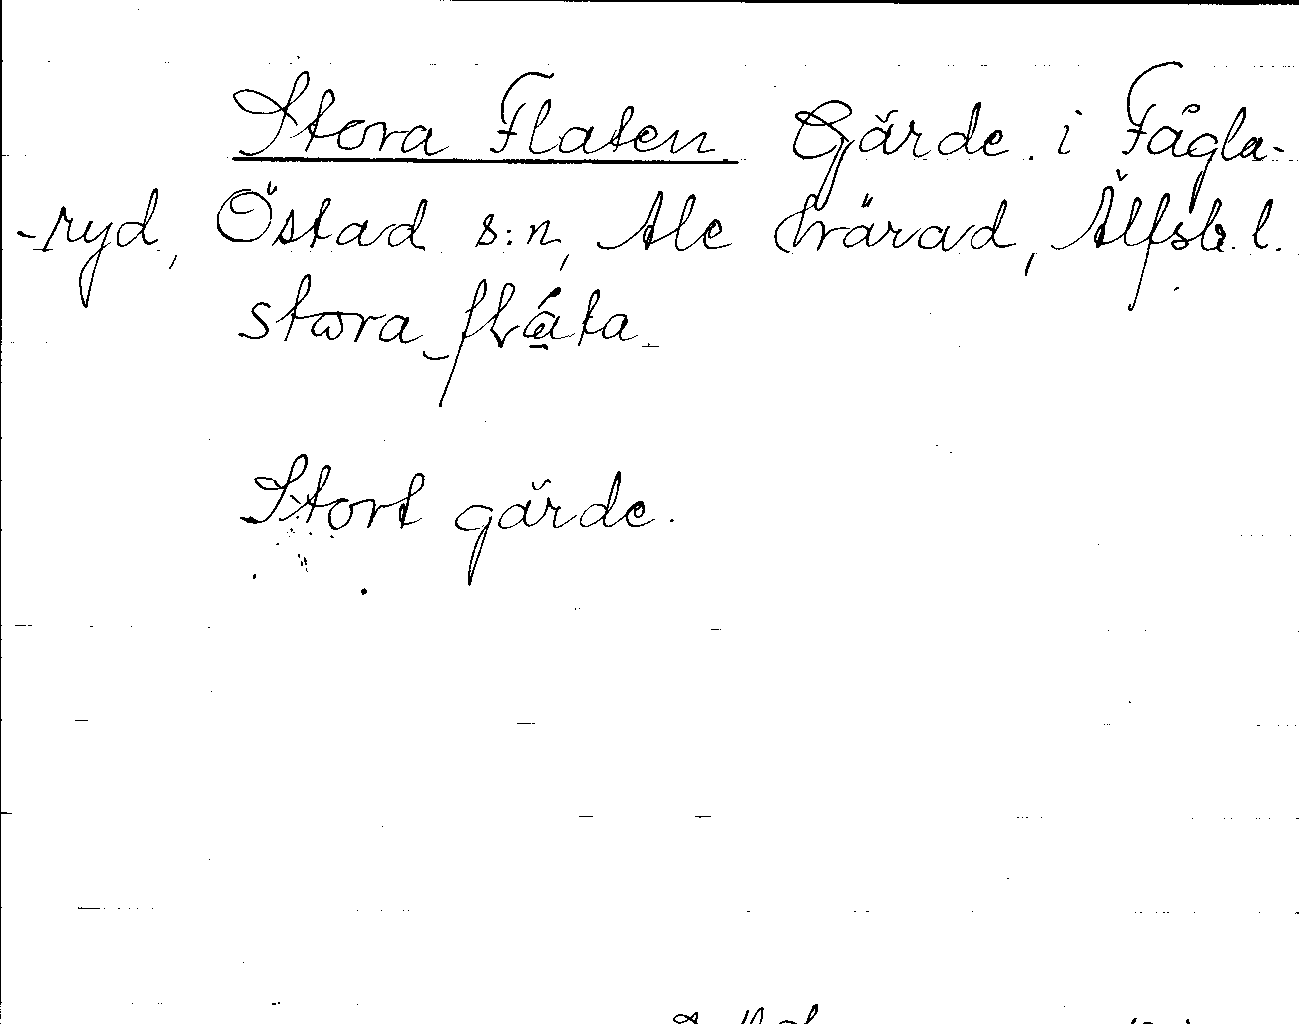 Stora Flaten Gärde i Fågla-
-ryd, Östad s:n, Ale härad, Älfsb. l.
Stort gärde.